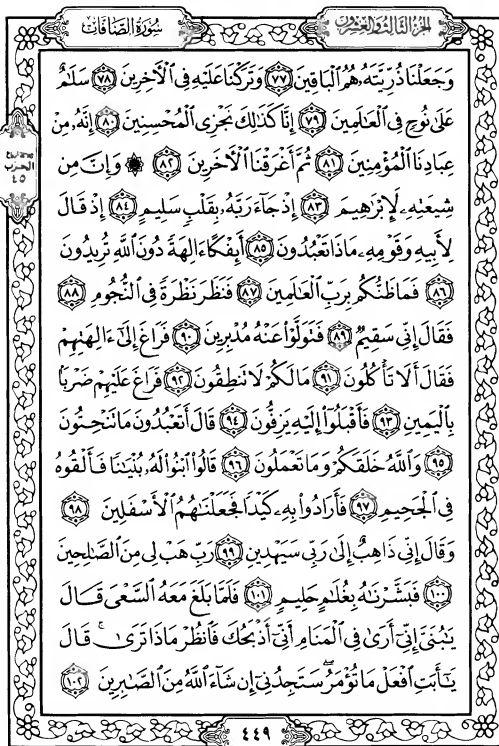 سُورَةُ الصَّافَّاتِ
الجُزءُ الثَّالِثُ وَالعِشْرُونَ
وَجَعَلْنَا ذُرِّيَّتَهُۥ هُمُ ٱلْبَاقِينَ ٧٧ وَتَرَكْنَا عَلَيْهِ فِى ٱلْءَاخِرِينَ ٧٨ سَلَٰمٌ
عَلَىٰ نُوحٍ فِى ٱلْعَٰلَمِينَ ٧٩ إِنَّا كَذَٰلِكَ نَجْزِى ٱلْمُحْسِنِينَ ٨٠ إِنَّهُۥ مِنْ
عِبَادِنَا ٱلْمُؤْمِنِينَ ٨١ ثُمَّ أَغْرَقْنَا ٱلْءَاخَرِينَ ٨٢ ۞ وَإِنَّ مِن
شِيعَتِهِۦ لَإِبْرَٰهِيمَ ٨٣ إِذْ جَآءَ رَبَّهُۥ بِقَلْبٍ سَلِيمٍ ٨٤ إِذْ قَالَ
لِأَبِيهِ وَقَوْمِهِۦ مَاذَا تَعْبُدُونَ ٨٥ أَئِفْكًا ءَالِهَةً دُونَ ٱللَّهِ تُرِيدُونَ
٨٦ فَمَا ظَنُّكُم بِرَبِّ ٱلْعَٰلَمِينَ ٨٧ فَنَظَرَ نَظْرَةً فِى ٱلنُّجُومِ ٨٨
فَقَالَ إِنِّى سَقِيمٌ ٨٩ فَتَوَلَّوْا۟ عَنْهُ مُدْبِرِينَ ٩٠ فَرَاغَ إِلَىٰٓ ءَالِهَتِهِمْ
فَقَالَ أَلَا تَأْكُلُونَ ٩١ مَا لَكُمْ لَا تَنطِقُونَ ٩٢ فَرَاغَ عَلَيْهِمْ ضَرْبًۢا
بِٱلْيَمِينِ ٩٣ فَأَقْبَلُوٓا۟ إِلَيْهِ يَزِفُّونَ ٩٤ قَالَ أَتَعْبُدُونَ مَا تَنْحِتُونَ
٩٥ وَٱللَّهُ خَلَقَكُمْ وَمَا تَعْمَلُونَ ٩٦ قَالُوا۟ ٱبْنُوا۟ لَهُۥ بُنْيَٰنًا فَأَلْقُوهُ
فِى ٱلْجَحِيمِ ٩٧ فَأَرَادُوا۟ بِهِۦ كَيْدًا فَجَعَلْنَٰهُمُ ٱلْأَسْفَلِينَ ٩٨
وَقَالَ إِنِّى ذَاهِبٌ إِلَىٰ رَبِّى سَيَهْدِينِ ٩٩ رَبِّ هَبْ لِى مِنَ ٱلصَّٰلِحِينَ
١٠٠ فَبَشَّرْنَٰهُ بِغُلَٰمٍ حَلِيمٍ ١٠١ فَلَمَّا بَلَغَ مَعَهُ ٱلسَّعْىَ قَالَ
يَٰبُنَىَّ إِنِّىٓ أَرَىٰ فِى ٱلْمَنَامِ أَنِّىٓ أَذْبَحُكَ فَٱنظُرْ مَاذَا تَرَىٰ ۚ قَالَ
يَٰٓأَبَتِ ٱفْعَلْ مَا تُؤْمَرُ ۖ سَتَجِدُنِىٓ إِن شَآءَ ٱللَّهُ مِنَ ٱلصَّٰبِرِينَ ١٠٢
الحزب
٤٥
٤٤٩